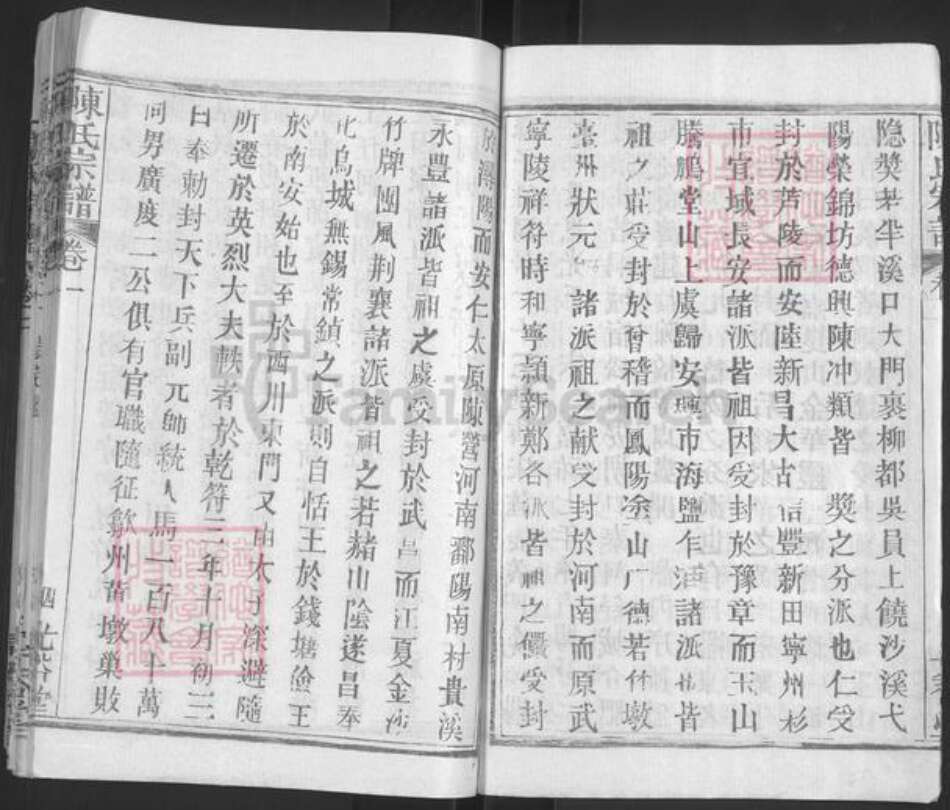 隐奬茅坪溪口大門裹柳都吳員上饒沙溪弋
陽榮錦坊德興陳冲類皆奬之分派也仁受
封於芦陵而安陸新昌大古信豐新田寧州杉
市宜城長安諸派皆祖因受封於豫章而玉山
騰鵬堂山上虞歸安興市海鹽乍浦諸派皆
祖之莊受封於曾稽而鳳陽余山广德若竹墩
臺州狀元諸派祖之献受封於河南而原武
寧陵祥符時和寧頴新鄭各派皆祖之儼受封
於潯陽而安仁太原陳營河南鄱陽南村貴溪
永豐諸派皆祖之虔受封於武昌而江夏金沙
竹牌團風荆襄諸派皆祖之若赭山陰遂昌奉
化烏城無錫常鎮之派則自恬王於錢塘儉王
於南安始也至於西川東門又由太子深避隨
所遷於英烈大夫軼者於乾符三年十月初三
日奉勅封天下兵副元帥統人馬一百八十萬
同男廣度二公俱有官職隨征歙州畨墩巢敗
陳氏宗譜
卷一
四